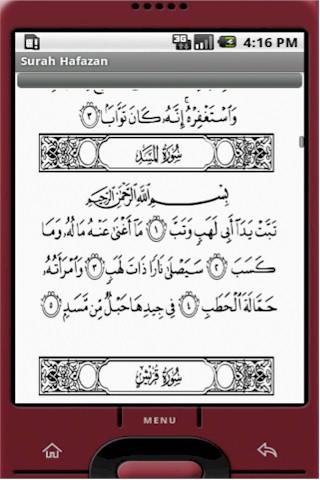 3G 4:16 PM
Surah Hafazan
وَٱسْتَغْفِرْهُ ۚ إِنَّهُۥ كَانَ تَوَّابًۢا ٣
سُورَةُ المَسَدِ
بِسْمِ ٱللَّهِ ٱلرَّحْمَٰنِ ٱلرَّحِيمِ
تَبَّتْ يَدَآ أَبِى لَهَبٍ وَتَبَّ ١ مَآ أَغْنَىٰ عَنْهُ مَالُهُۥ وَمَا
كَسَبَ ٢ سَيَصْلَىٰ نَارًا ذَاتَ لَهَبٍ ٣ وَٱمْرَأَتُهُۥ
حَمَّالَةَ ٱلْحَطَبِ ٤ فِى جِيدِهَا حَبْلٌ مِّن مَّسَدٍۭ ٥
سُورَةُ قُرَيْشٍ
MENU